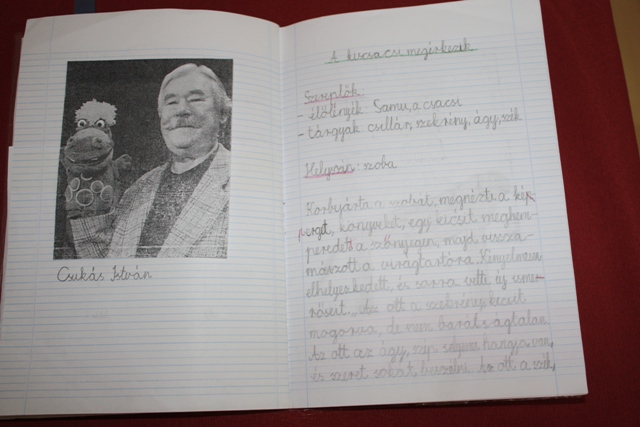 Csukás István
A kiscsacsi megérkezik
Szereplők
- élőlények: Samu, a csacsi
- tárgyak csillár, szekrény, ágy, szék
Helyszín: szoba
Körbejárta a szobát, megnézte a kép
könyveket, egy kicsit meghem-
peredett a szőnyegen, majd vissza-
mászott a virágtartóra. Kényelmesen
elhelyezkedett, és sorra vette új isme-
rőseit. „Az ott a szekrény, kicsit
mogorva, de nem barátságtalan.
Az ott az ágy, szép hangja van,
és szeret sokat beszélni. Az ott a szék,